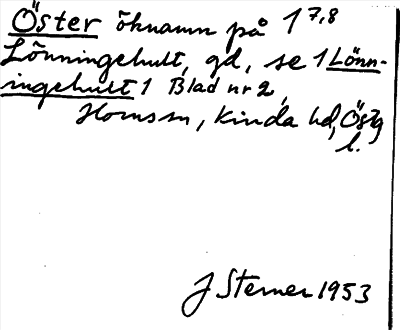 Öster öknamn på 1 7,8
Lönningehult, gd, se 1 Lönn-
ingehult 1 Blad nr 2,
Hornsn, Kinda hd, Östg
l.
J Sterner 1953